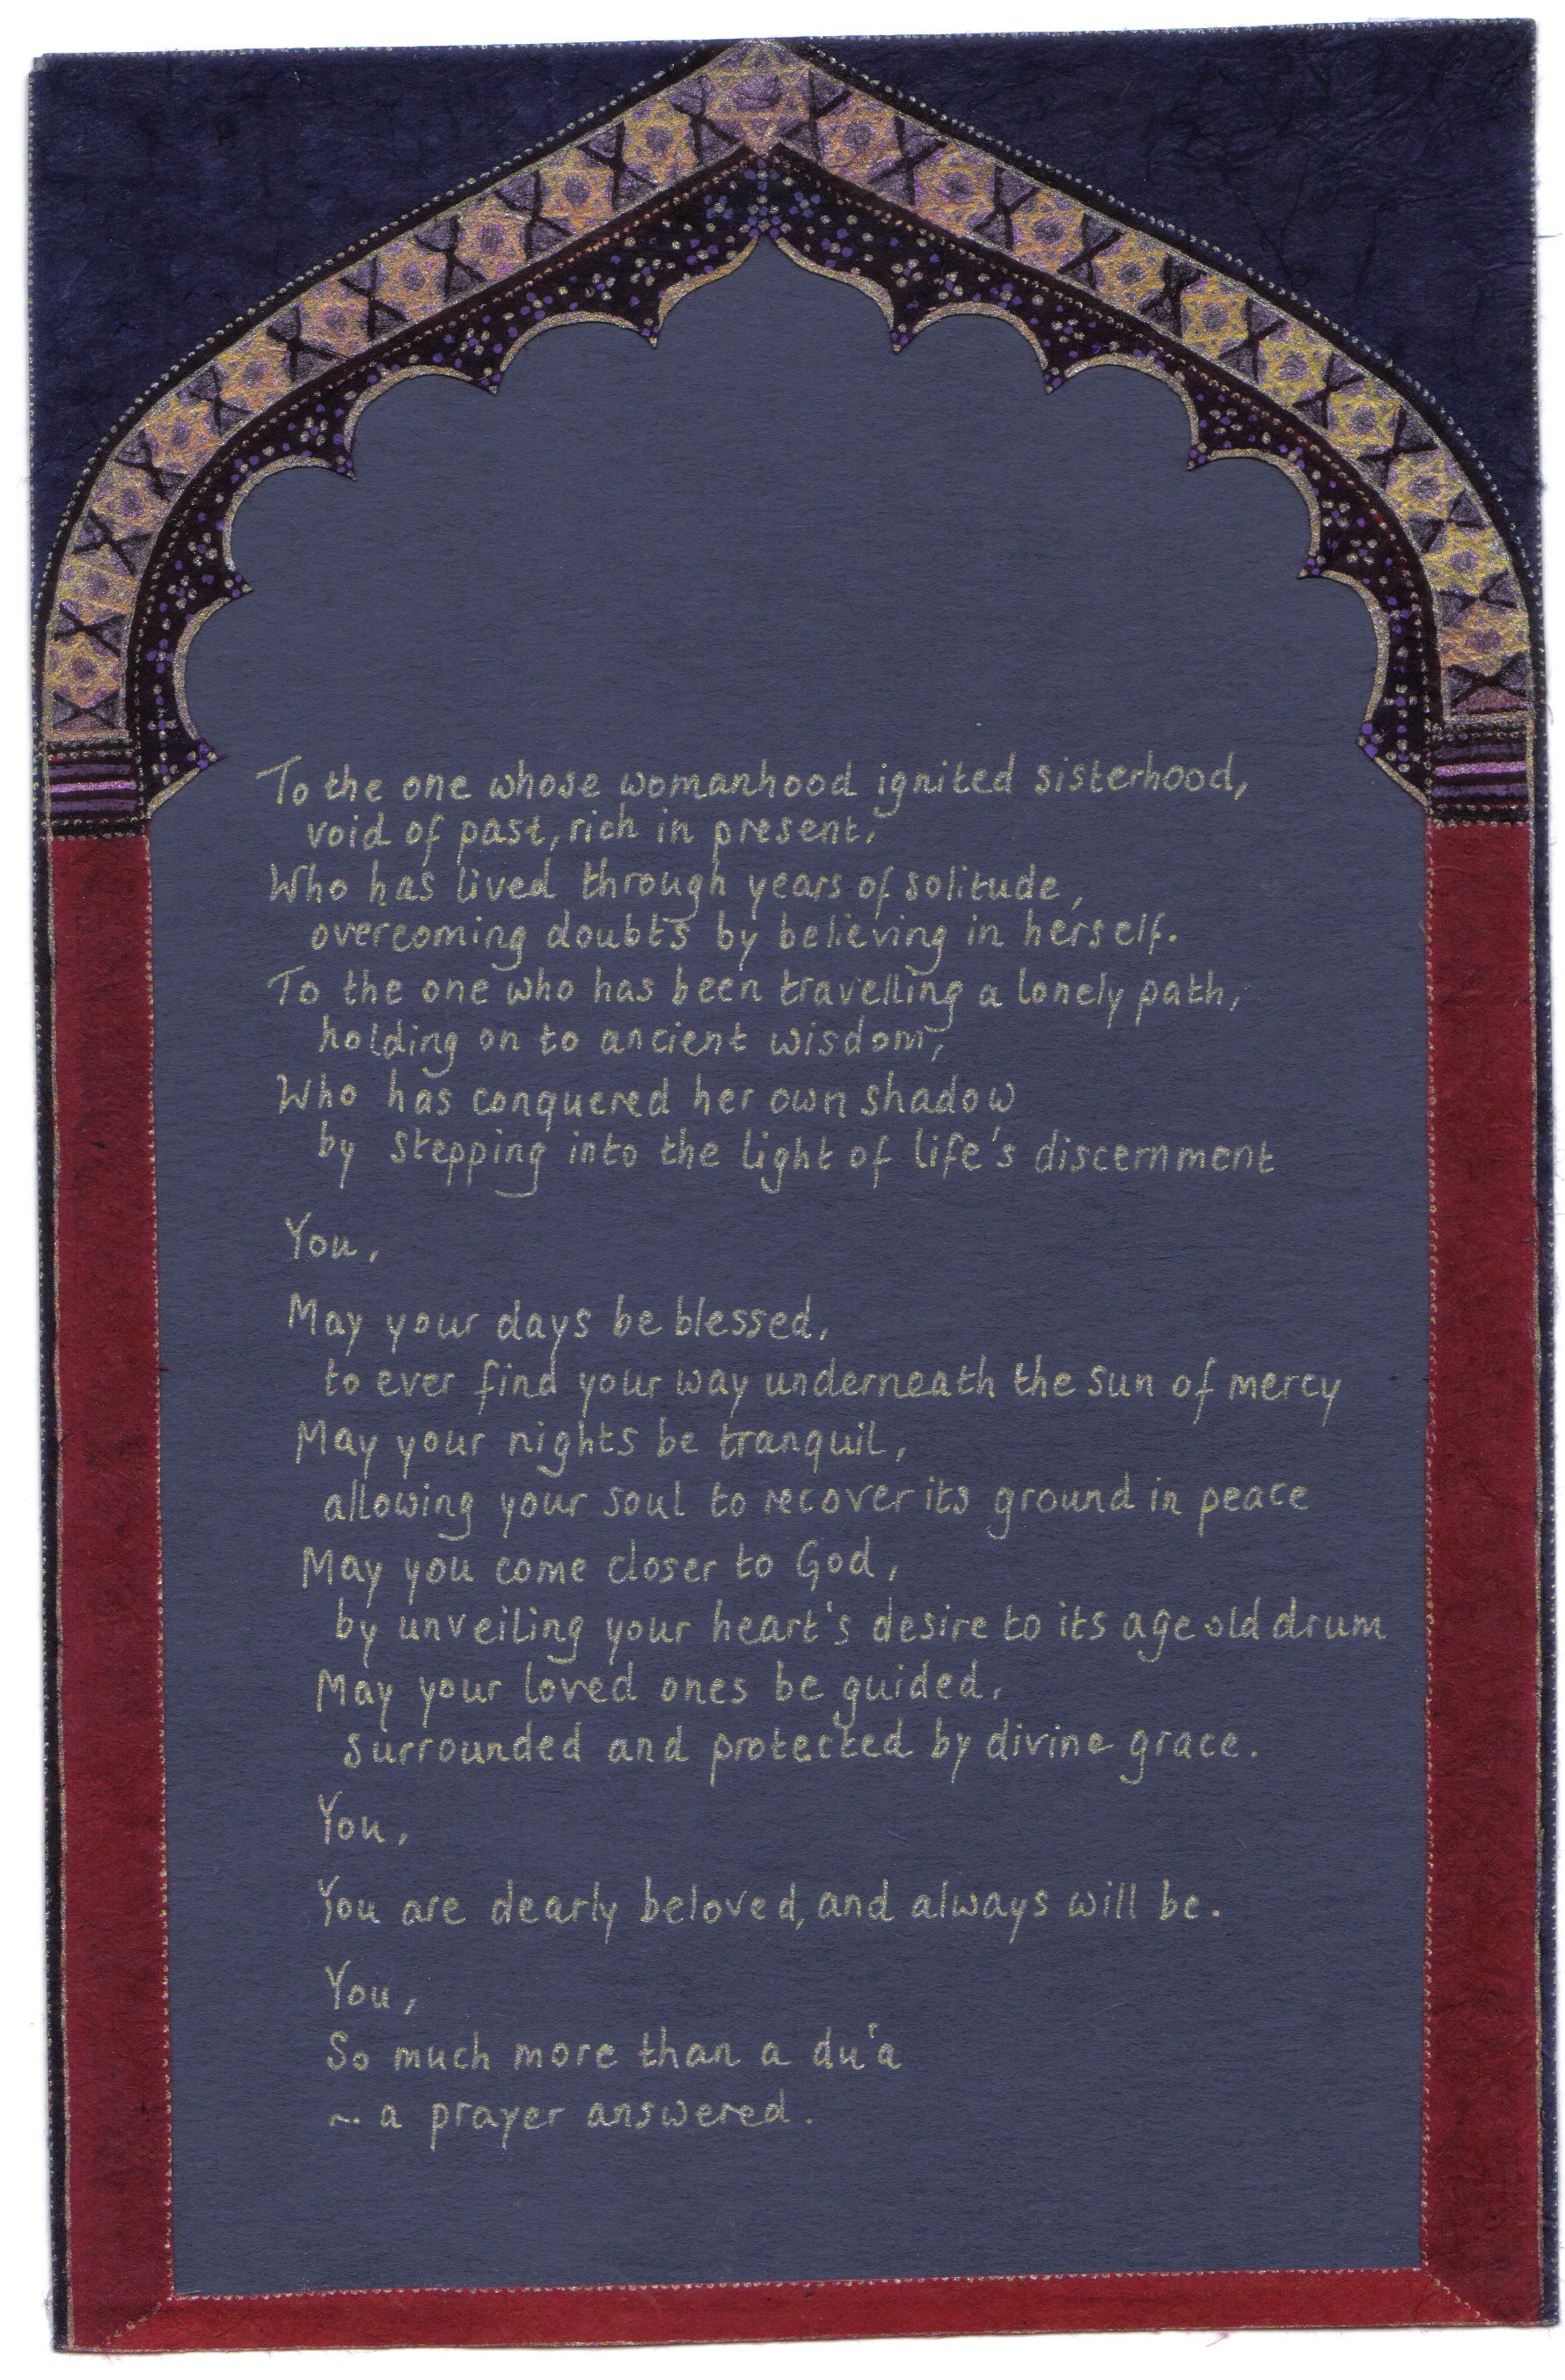 To the one whose womanhood ignited sisterhood,
void of past, rich in present.
Who has lived through years of solitude,
overcoming doubts by believing in herself.
To the one who has been travelling a lonely path,
holding on to ancient wisdom,
Who has conquered her own shadow
by stepping into the light of life's discernment
You,
May your days be blessed,
to ever find your way underneath the sun of mercy
May your nights be tranquil,
allowing your soul to recover its ground in peace
May you come closer to God,
by unveiling your heart's desire to its age old drum
May your loved ones be guided,
surrounded and protected by divine grace.
You,
You are dearly beloved, and always will be.
You,
So much more than a du'a
~ a prayer answered.